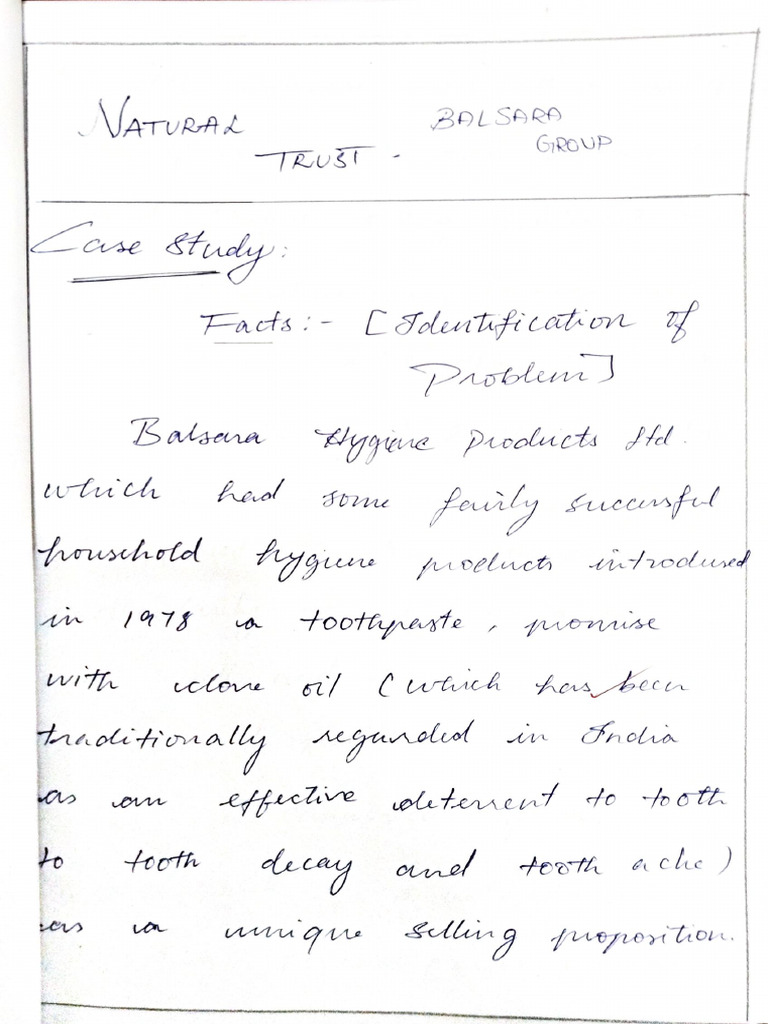 NATURAL TRUST - BALSARA GROUP
Case Study:
Facts:- [Identification of
Problem]
Balsara Hygiene Products Ltd.
which had some fairly successful
household hygiene products introdused
in 1978 a toothpaste, promise
with clove oil (which has been
traditionally regarded in India
as an effective deterrent to tooth
to tooth decay and tooth ache)
as a unique selling proposition.